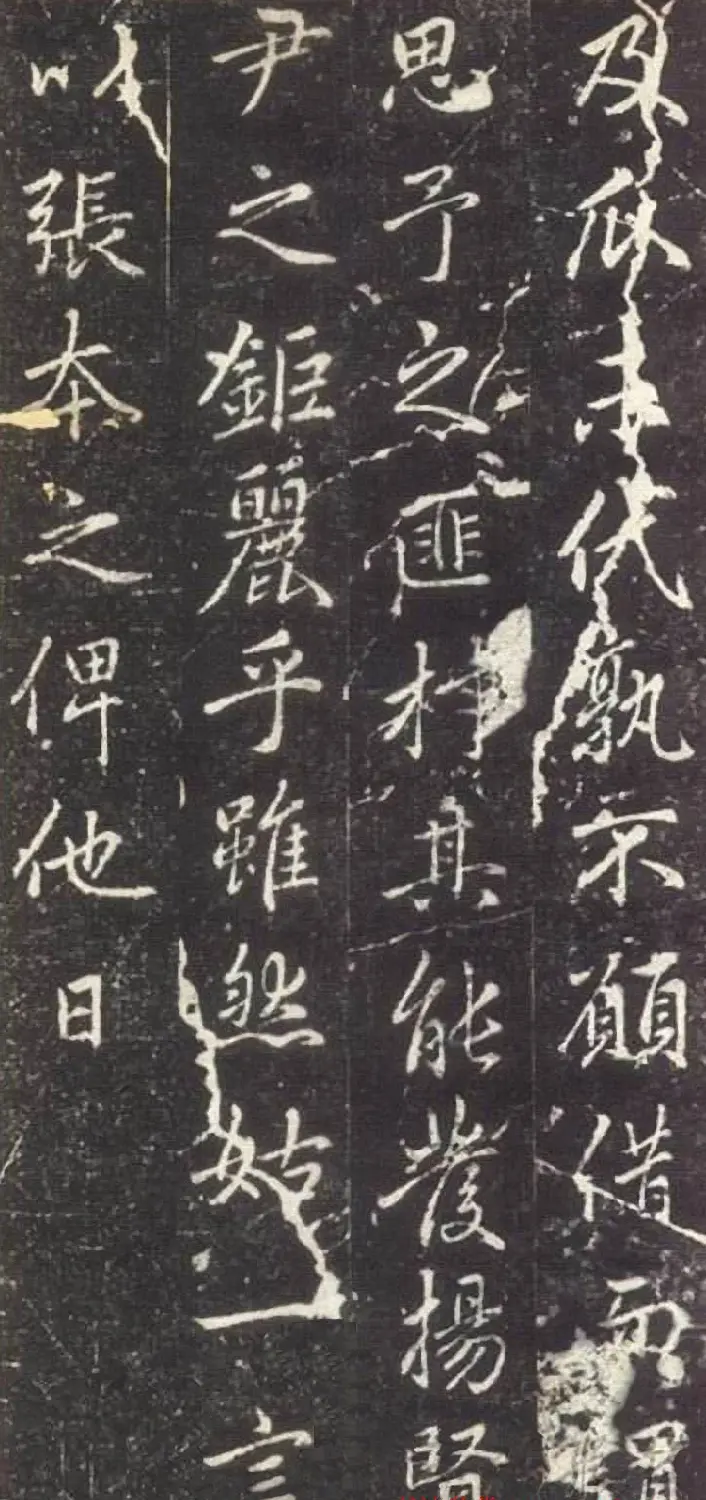 及瓜未代孰不願借而
思予之匪材其能發揚賢
尹之鉅麗乎雖然姑一言
以張本之俾他日